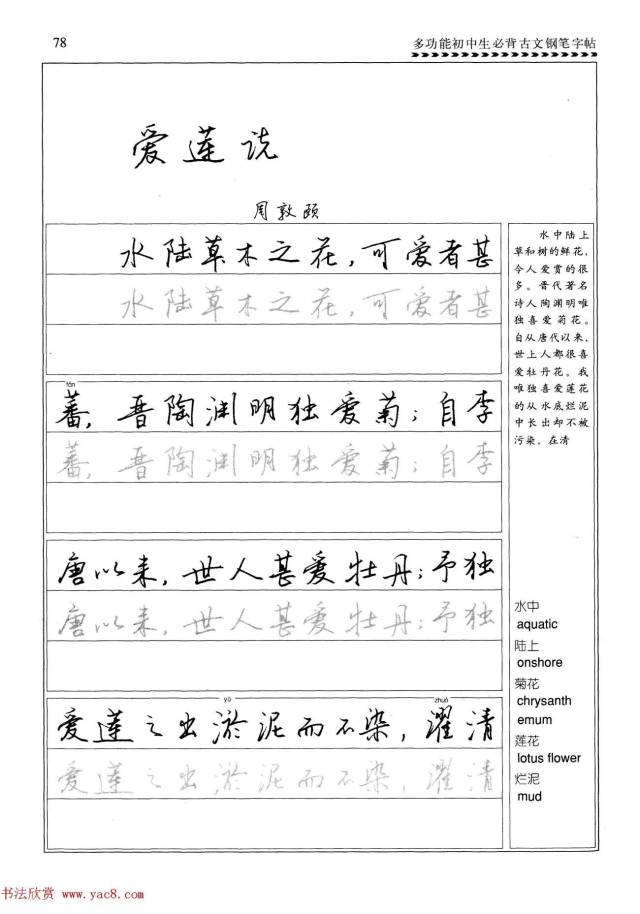 78
多功能初中生必背古文钢笔字帖
爱莲说
周敦颐
水陆草木之花，可爱者甚
水陆草木之花，可爱者甚
fán
蕃，晋陶渊明独爱菊；自李
蕃，晋陶渊明独爱菊；自李
唐以来，世人甚爱牡丹；予独
唐以来，世人甚爱牡丹；予独
yū
zhuó
爱莲之出淤泥而不染，濯清
爱莲之出淤泥而不染，濯清
水中陆上
草和树的鲜花，
令人爱赏的很
多。晋代著名
诗人陶渊明唯
独喜爱菊花。
自从唐代以来，
世上人都很喜
爱牡丹花。我
唯独喜爱莲花
的从水底烂泥
中长出却不被
污染，在清
水中
aquatic
陆上
onshore
菊花
chrysanth
emum
莲花
lotus flower
烂泥
mud
书法欣赏 www.yac8.com